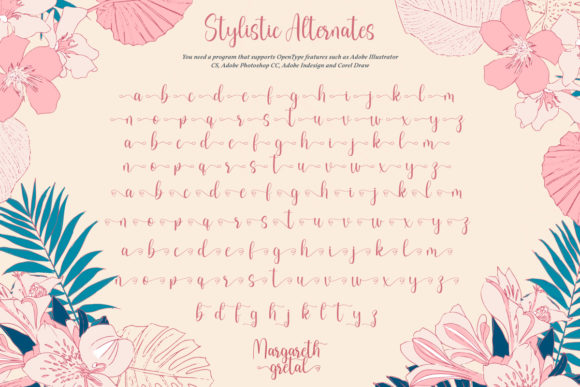 Stylistic Alternates
You need a program that supports OpenType features such as Adobe Illustrator
CS, Adobe Photoshop CC, Adobe Indesign and Corel Draw
a b c d e f g h i j k l m
n o p q r s t u v w x y z
a b c d e f g h i j k l m
n o p q r s t u v w x y z
a b c d e f g h i j k l m
n o p q r s t u v w x y z
a b c d e f g h i j k l m
n o p q r s t u v w x y z
b d f g h j k l t y z
Margareth
gretal